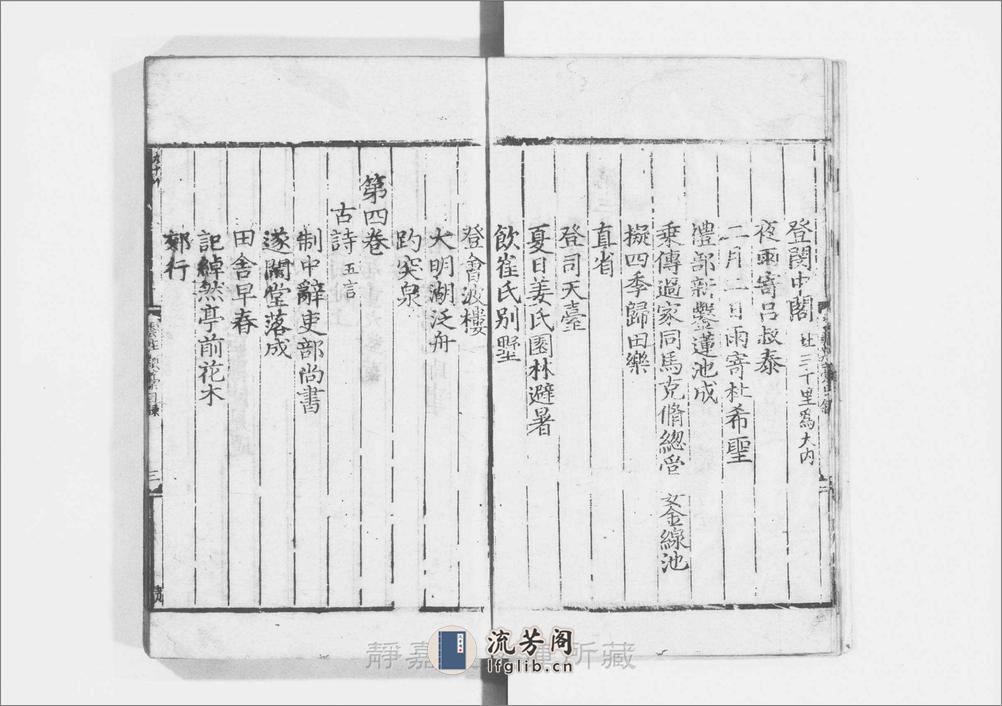 登閱中閣 三丁里爲大内
夜雨寄呂叔泰
二月二日雨寄杜希聖
禮部新鑿蓮池成
乘傳過家同馬克脩總管 金線池
擬四季歸田樂
直省
登司天臺
夏日姜氏園林避暑
飲崔氏别墅
登會波樓
大明湖泛舟
趵突泉
第四卷
古詩 五言
制中辭吏部尚書
遂閒堂落成
田舍早春
記綽然亭前花木
郊行
三
流芳阁
lfglib.cn
靜嘉 所藏